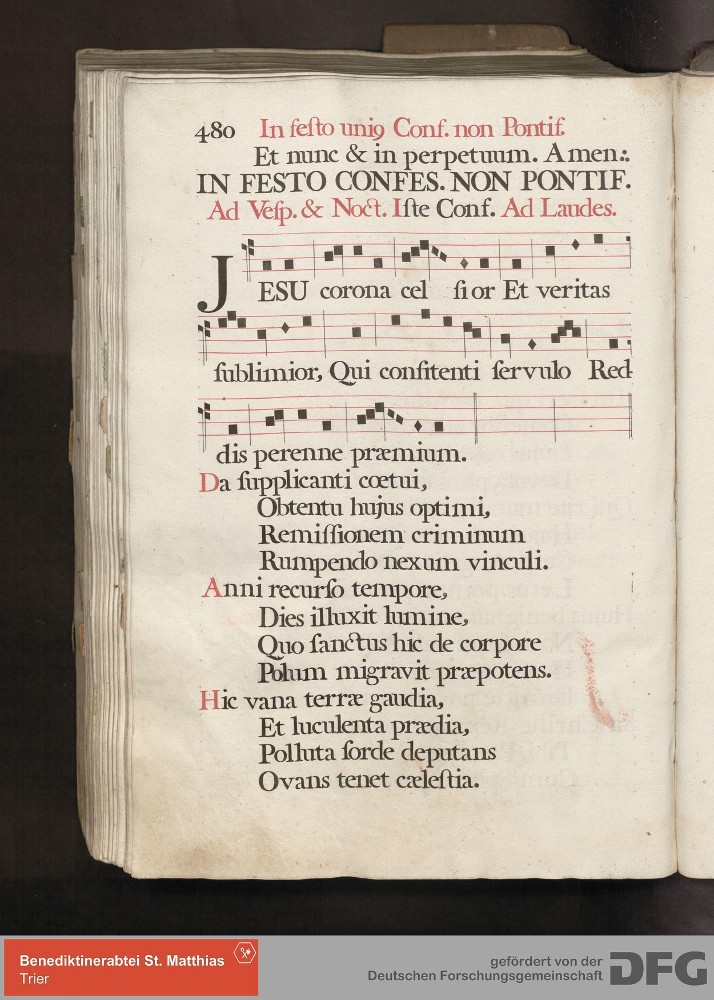 480 In festo uniꝯ Conf. non Pontif.
Et nunc & in perpetuum. Amen.:.
IN FESTO CONFES. NON PONTIF.
Ad Vesp. & Noct. Iste Conf. Ad Laudes.
JESU corona cel sior Et veritas
sublimior, Qui confitenti servulo Red-
dis perenne præmium.
Da supplicanti cœtui,
Obtentu hujus optimi,
Remissionem criminum
Rumpendo nexum vinculi.
Anni recurso tempore,
Dies illuxit lumine,
Quo sanctus hic de corpore
Polum migravit præpotens.
Hic vana terræ gaudia,
Et luculenta prædia,
Polluta sorde deputans
Ovans tenet cælestia.
Benediktinerabtei St. Matthias
Trier
gefördert von der
Deutschen Forschungsgemeinschaft
DFG